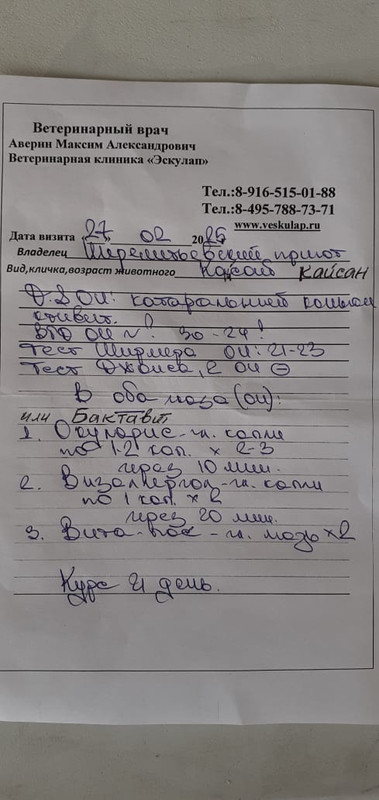 Ветеринарный врач
Аверин Максим Александрович
Ветеринарная клиника «Эскулап»
Тел.:8-916-515-01-88
Тел.:8-495-788-73-71
www.veskulap.ru
Дата визита « 27 » 02 2025
Владелец Шереметьевский приют
Вид,кличка,возраст животного Кайсан
D.S OU: катаральный конъюн
ктивит.
ВГД OU N: 30-24!
Тест Ширмера OU: 21-23
Тест Джонса, 2 OU ⊖
В оба глаза (OU):
или Бактавит
1. Окуларис-гл. капли
по 1-2 кап. х 2-3
через 10 мин.
2. Визаллергол-гл. капли
по 1 кап. х 2
через 20 мин.
3. Вита-пос-гл. мазь х2
Курс 21 день.